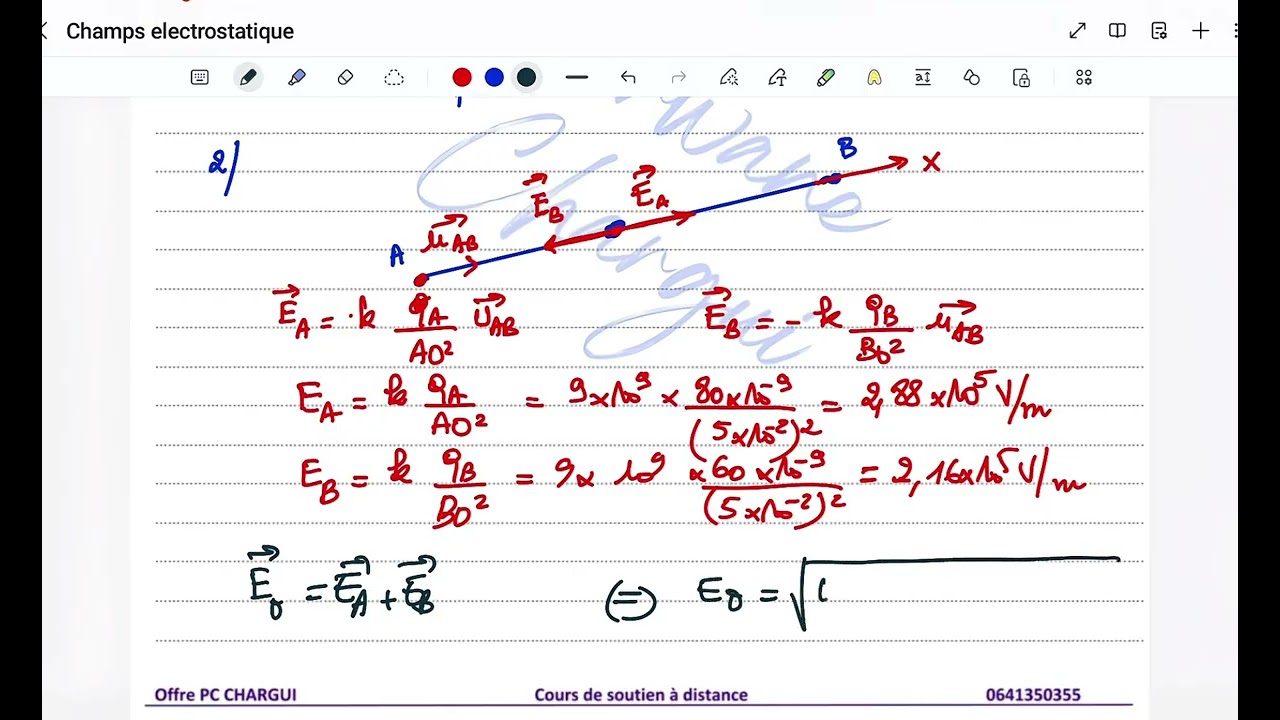 Champs electrostatique
Wane
Chargui
2/
B
X
E⃗_A
E⃗_B
μ⃗_AB
A
E⃗_A = ·k q_A/AO² U⃗_AB
E⃗_B = - k q_B/BO² μ⃗_AB
E_A = k q_A/AO² = 9x10⁹ x 80x10⁻⁹/(5x10⁻²)² = 2,88x10⁵ V/m
E_B = k q_B/BO² = 9x 10⁹ x60x10⁻⁹/(5x10⁻²)² = 2,16x10⁵ V/m
E⃗_O = E⃗_A + E⃗_B (=) E_O = √(
Offre PC CHARGUI
Cours de soutien à distance
0641350355